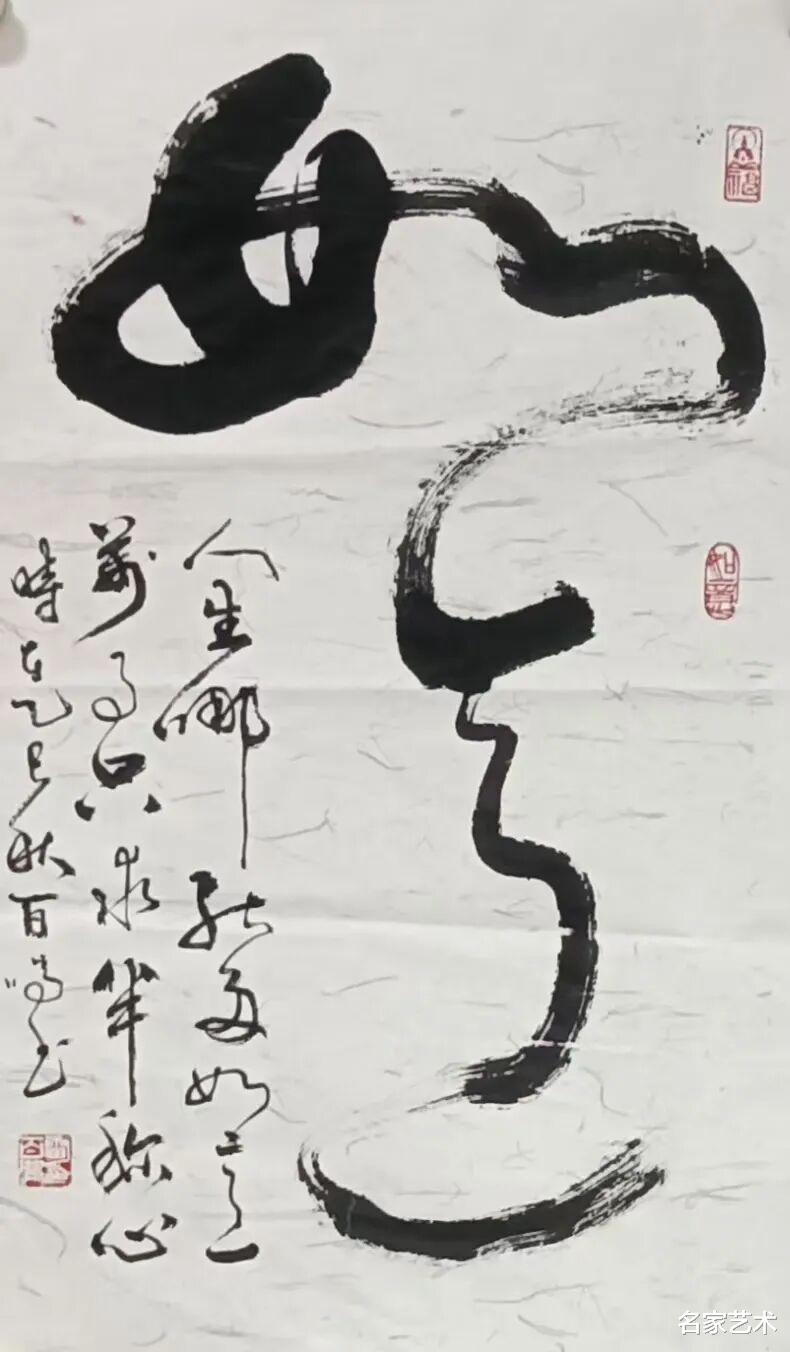 如意
人生哪能多如意
萬事只求半称心
時在乙巳秋百鸣书
如意
名家艺术